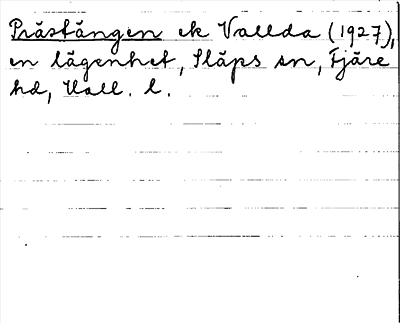 Prästängen ek Vallda (1927),
en lägenhet, Släps sn, Fjäre
hd, Hall. l.